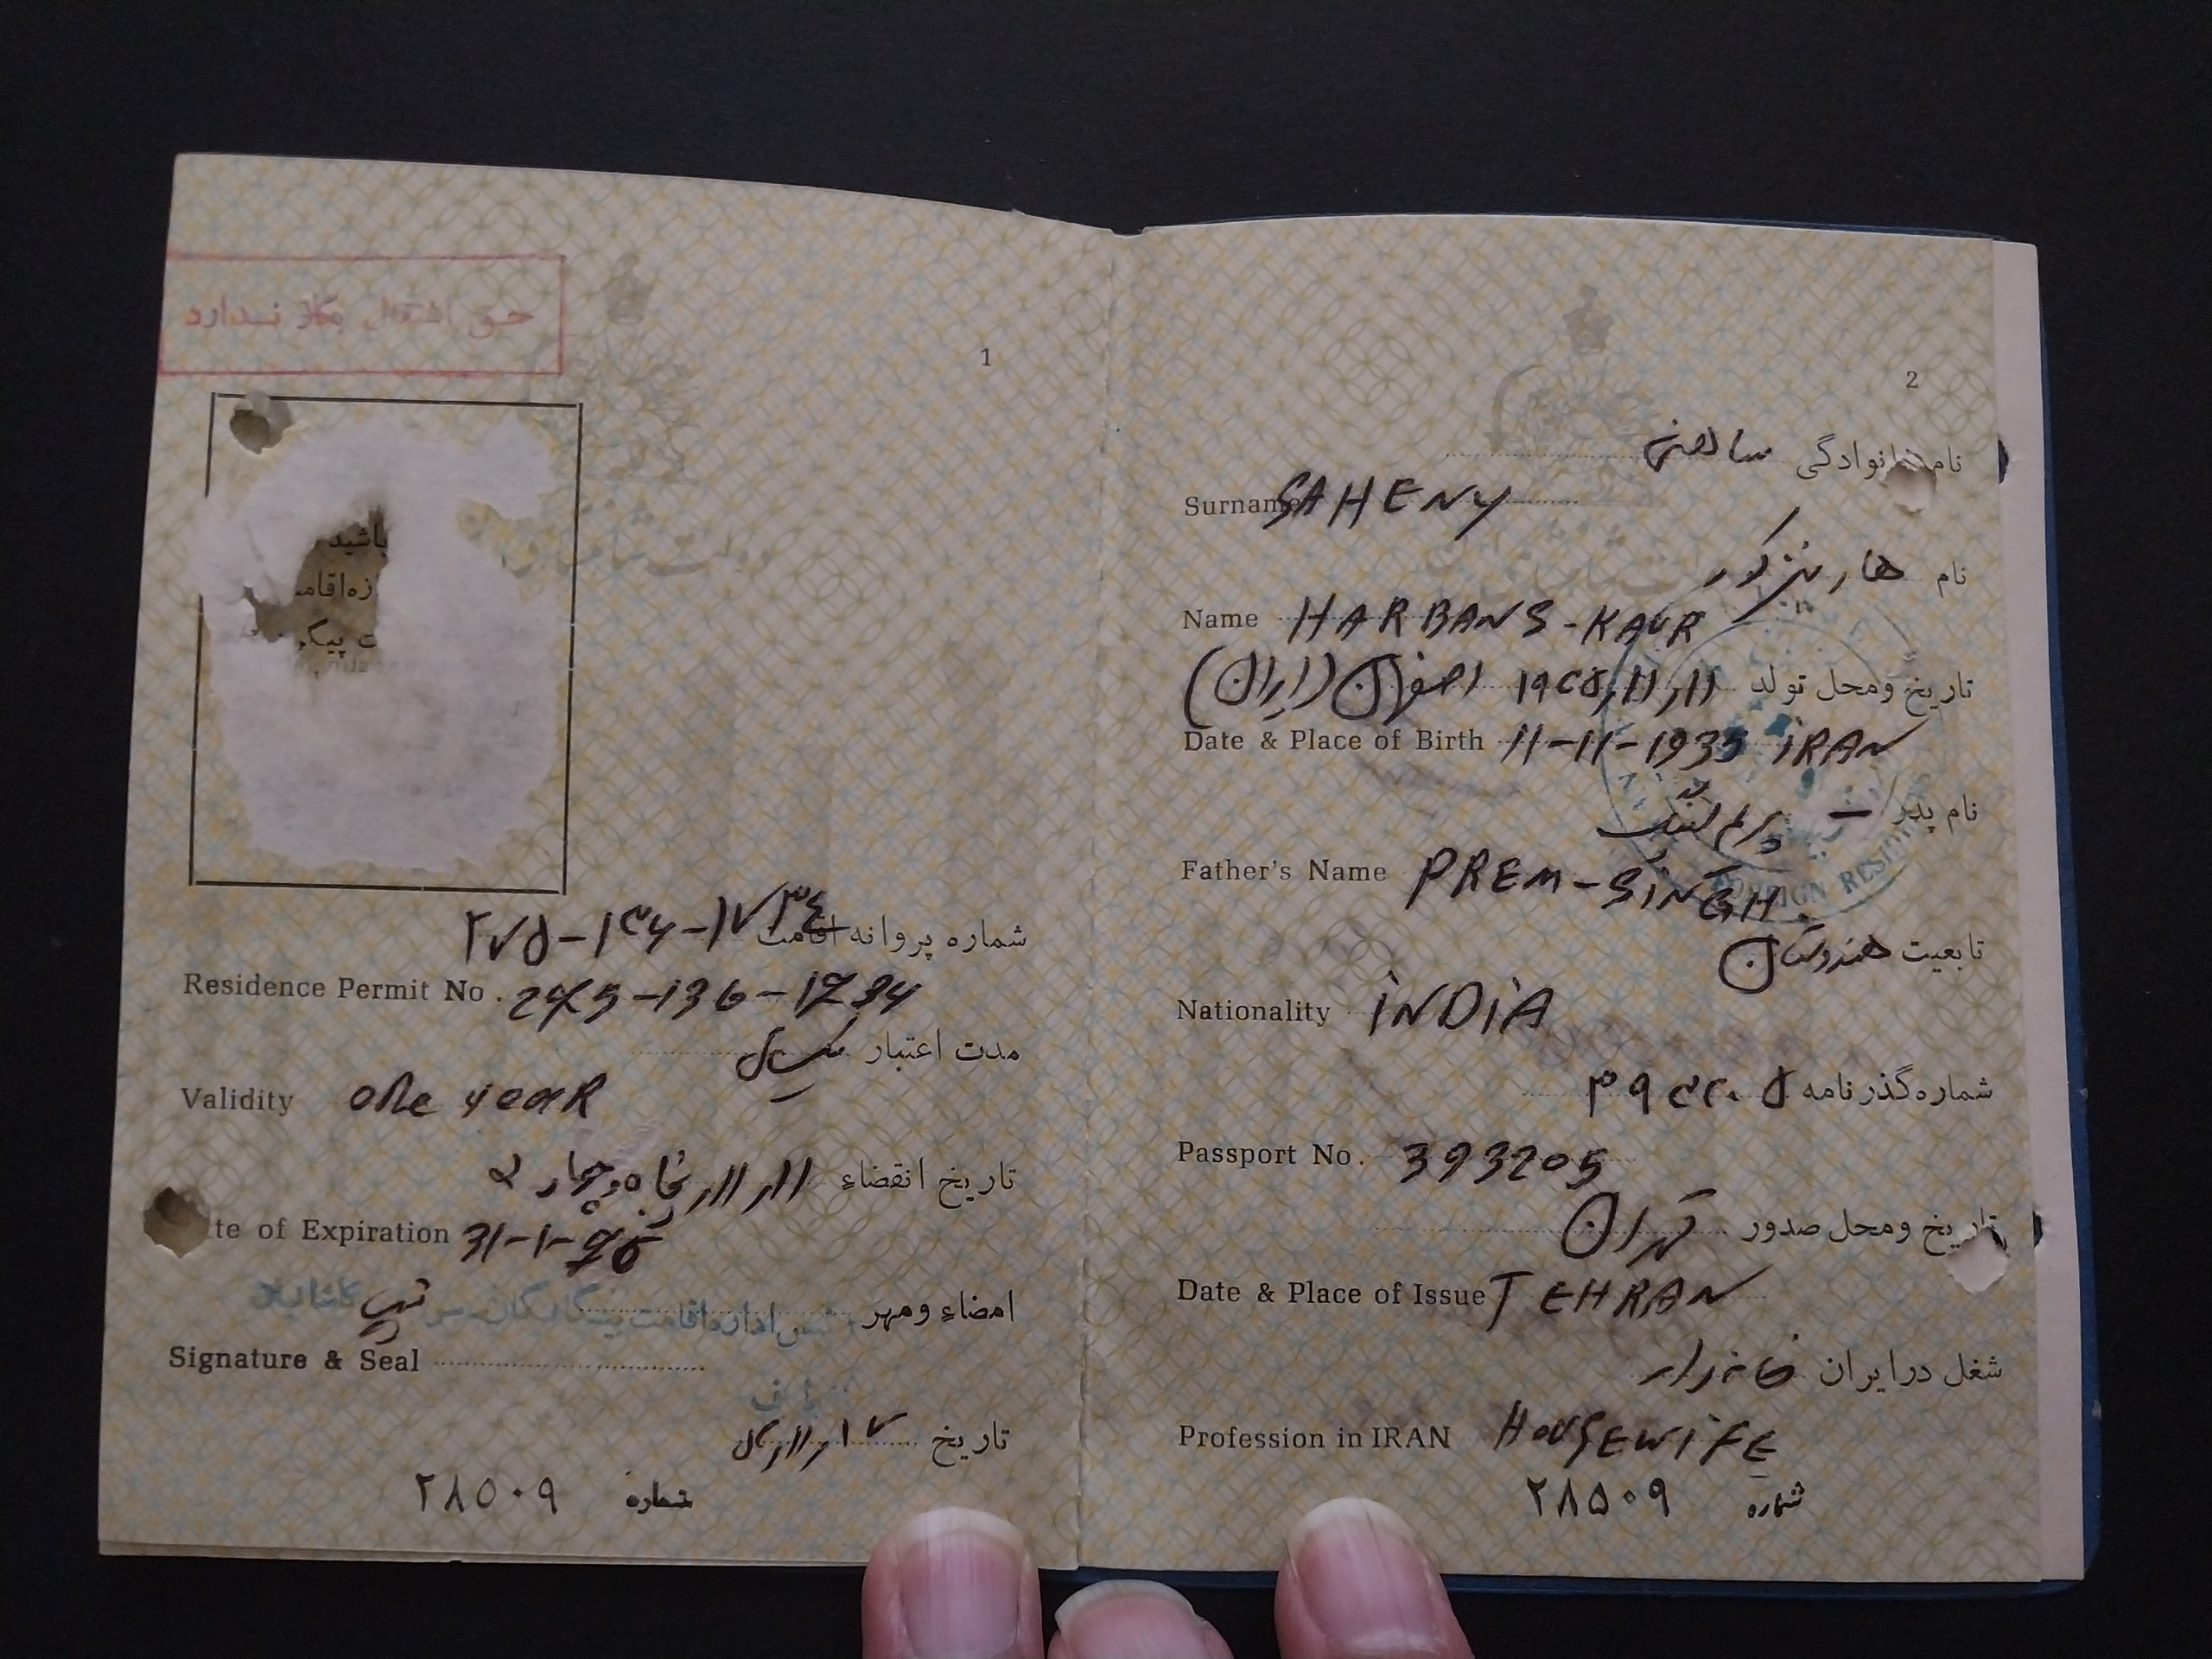 حق اشتغال بکار ندارد
1
باشید
زه اقامت
ت پیگر
شماره پروانه اقامت ۲۷۵-۱۳۶-۱۷۳۴
Residence Permit No. 275-136-1734
مدت اعتبار یکسال
Validity one year
تاریخ انقضاء
te of Expiration 31-1-76
امضاء ومهر
Signature & Seal
تاریخ
شماره ۲۸۵۰۹
2
نام خانوادگی ساهنی
Surname SAHENY
نام هاربنز کور
Name HARBANS-KAUR
تاریخ ومحل تولد ۱۱ر۱۱ر۱۹۳۵ اصفهان (ایران)
Date & Place of Birth 11-11-1935 iRAN
نام پدر پرم سینگ
Father's Name PREM-SiNGH.
FOREIGN RESID
تابعیت هندوستان
Nationality iNDiA
شماره گذرنامه ۳۹۳۲۰۵
Passport No. 393205
تاریخ ومحل صدور تهران
Date & Place of Issue TEHRAN
شغل درایران خانه‌دار
Profession in IRAN HOUSEWiFE
شماره ۲۸۵۰۹